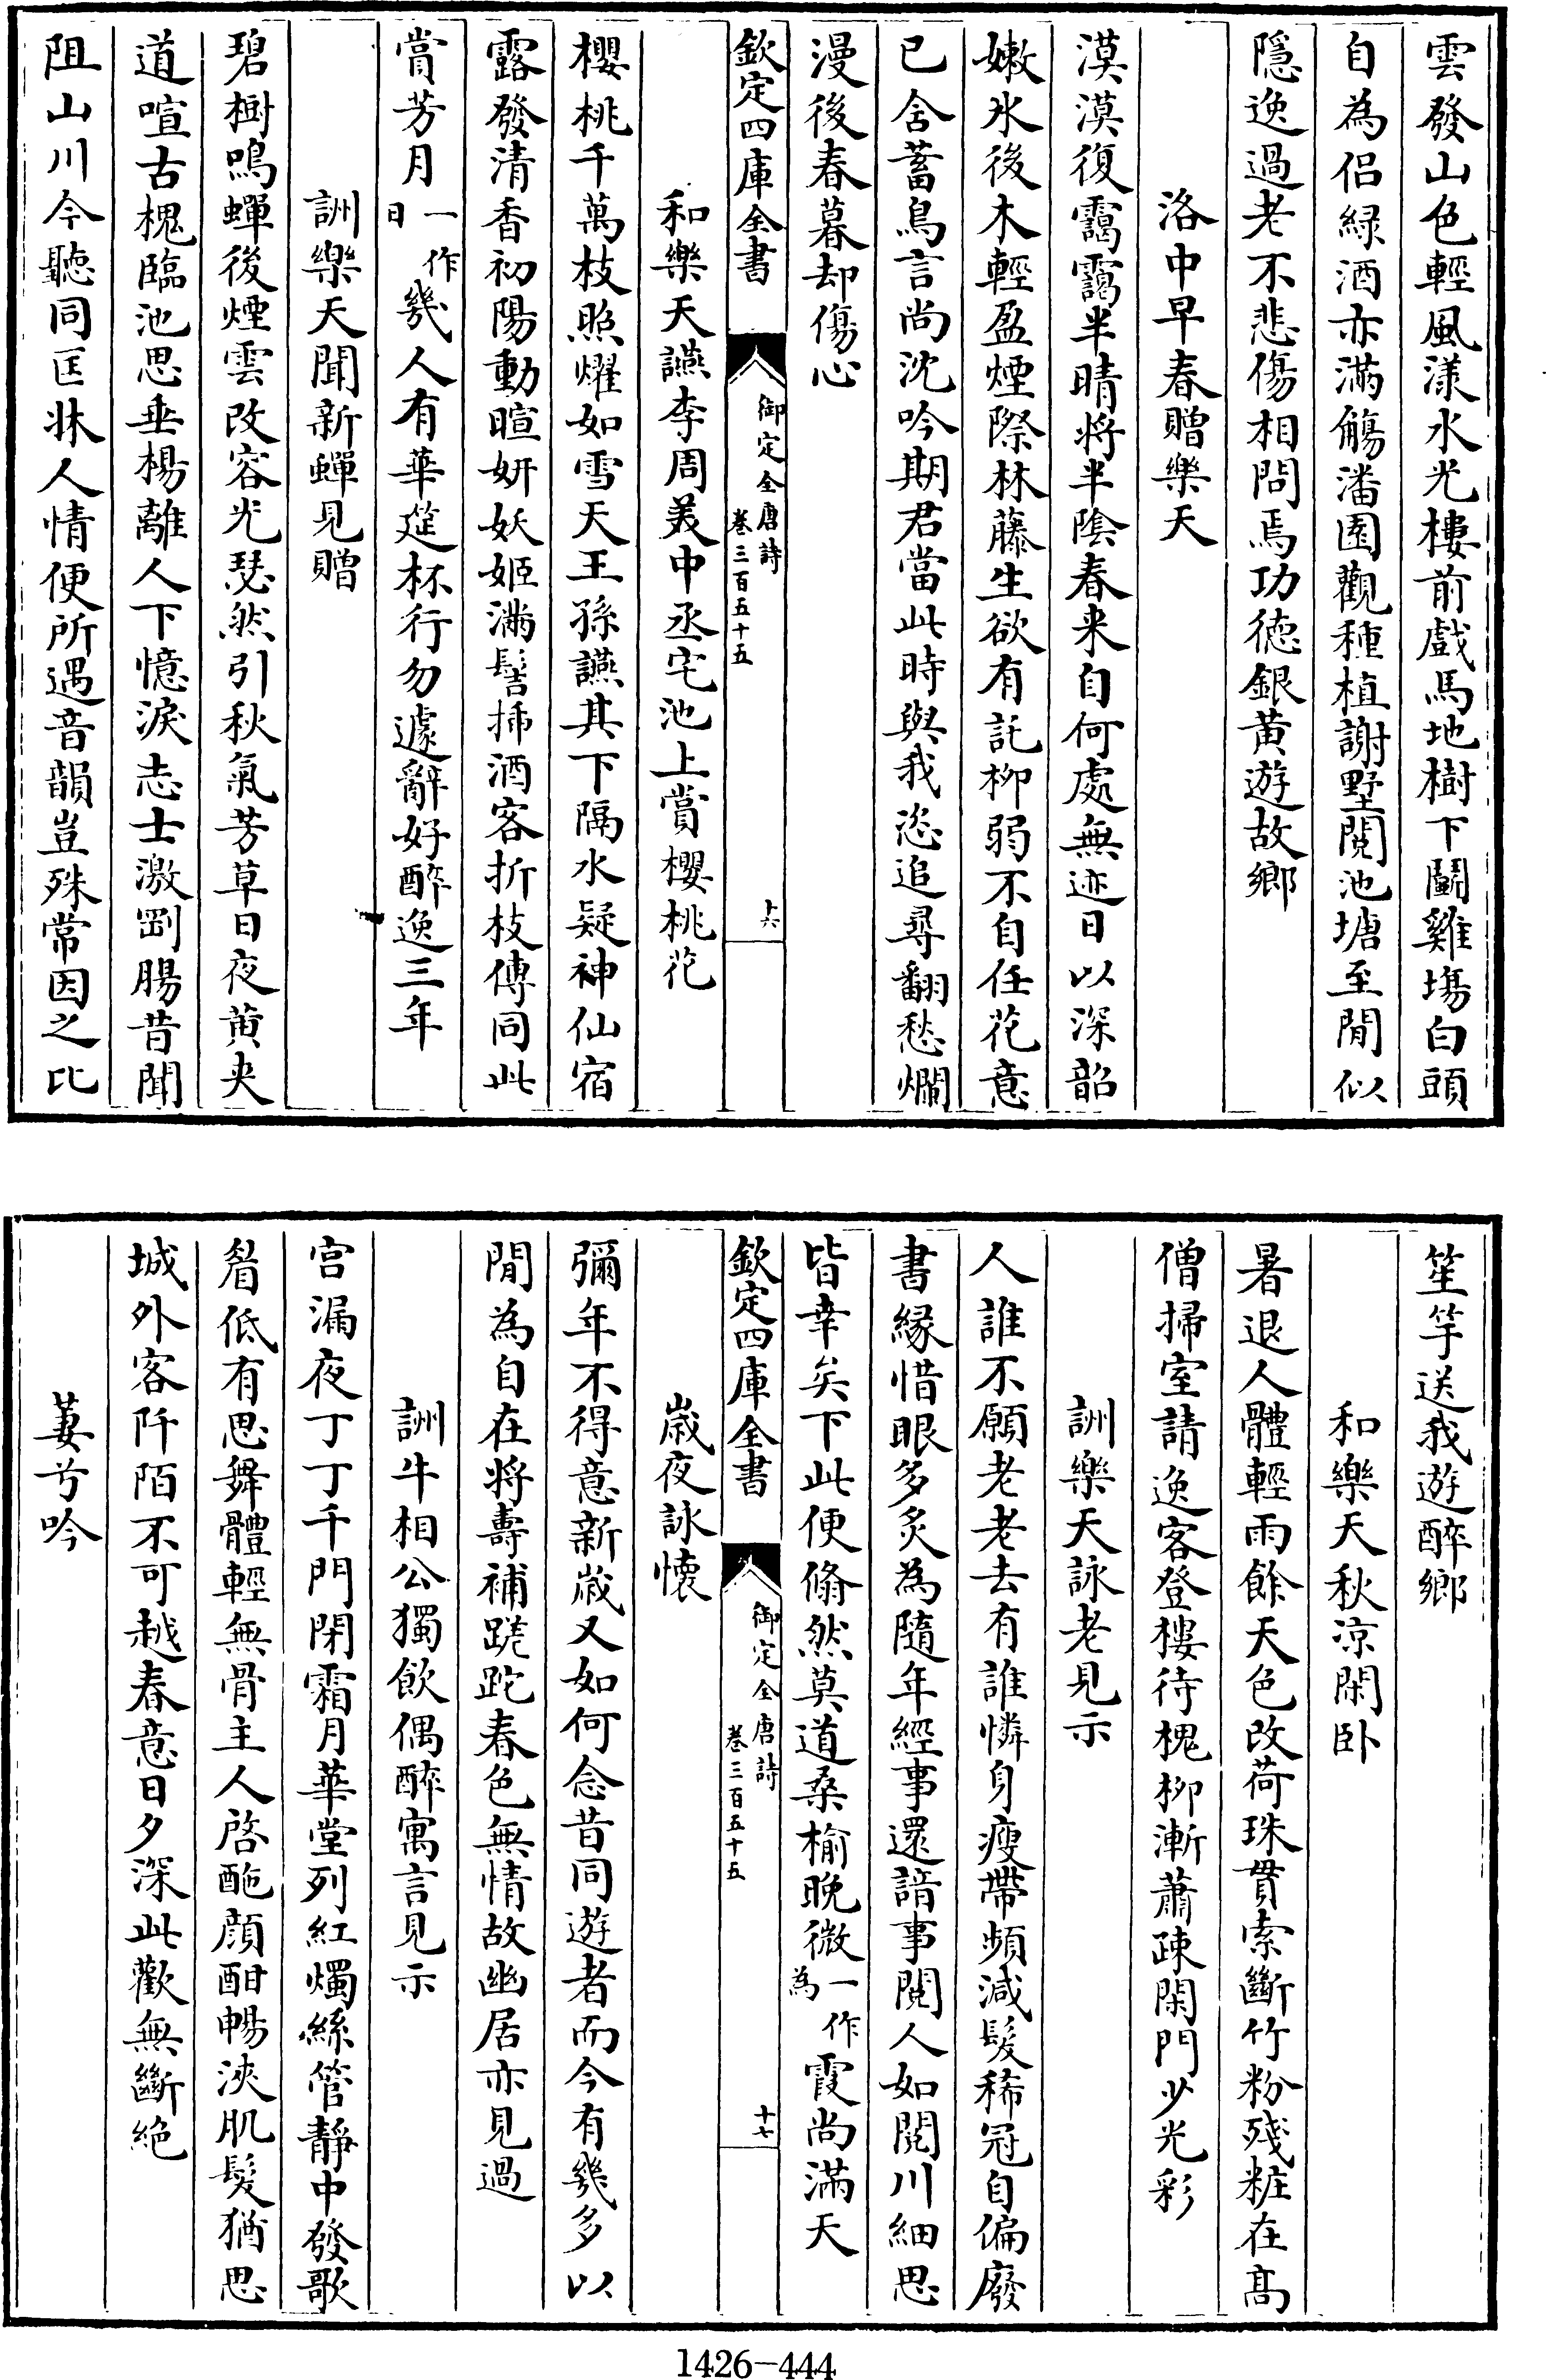 雲發山色輕風漾水光樓前戲馬地樹下鬬雞塲白頭
自為侣緑酒亦滿觴潘園觀種植謝墅閱池塘至閒似
隱逸過老不悲傷相問焉功徳銀黄遊故鄉
洛中早春贈樂天
漠漠復靄靄半晴將半陰春来自何處無迹日以深韶
嫩氷後木輕盈煙際林藤生欲有託栁弱不自任花意
已含蓄鳥言尚沈吟期君當此時與我恣追尋翻愁爛
漫後春暮却傷心
欽定四庫全書
御定全唐詩
卷三百五十五
十六
和樂天讌李周美中丞宅池上賞櫻桃花
櫻桃千萬枝照耀如雪天王孫讌其下隔水疑神仙宿
露發清香初陽動暄妍妖姬滿髻揷酒客折枝傳同此
賞芳月一作日幾人有華筵杯行勿遽辭好醉逸三年
詶樂天聞新蟬見贈
碧樹鳴蟬後煙雲改容光瑟然引秋氣芳草日夜黄夾
道喧古槐臨池思垂楊離人下憶淚志士激剛腸昔聞
阻山川今聽同匡牀人情便所遇音韻豈殊常因之比
笙竽送我遊醉鄉
和樂天秋凉閑卧
暑退人體輕雨餘天色改荷珠貫索斷竹粉殘粧在髙
僧掃室請逸客登樓待槐栁漸蕭踈閑門少光彩
詶樂天詠老見示
人誰不願老老去有誰憐身瘦帶頻減髮稀冠自偏廢
書縁惜眼多炙為隨年經事還諳事閱人如閱川細思
皆幸矣下此便翛然莫道桑榆晚微一作為霞尚滿天
欽定四庫全書
御定全唐詩
卷三百五十五
十七
歳夜詠懐
彌年不得意新歳又如何念昔同遊者而今有幾多以
閒為自在將壽補蹉跎春色無情故幽居亦見過
詶牛相公獨飲偶醉寓言見示
宫漏夜丁丁千門閉霜月華堂列紅燭絲管靜中發歌
眉低有思舞體輕無骨主人啓酡顔酣暢浹肌髮猶思
城外客阡陌不可越春意日夕深此歡無斷絶
萋兮吟
1426-444